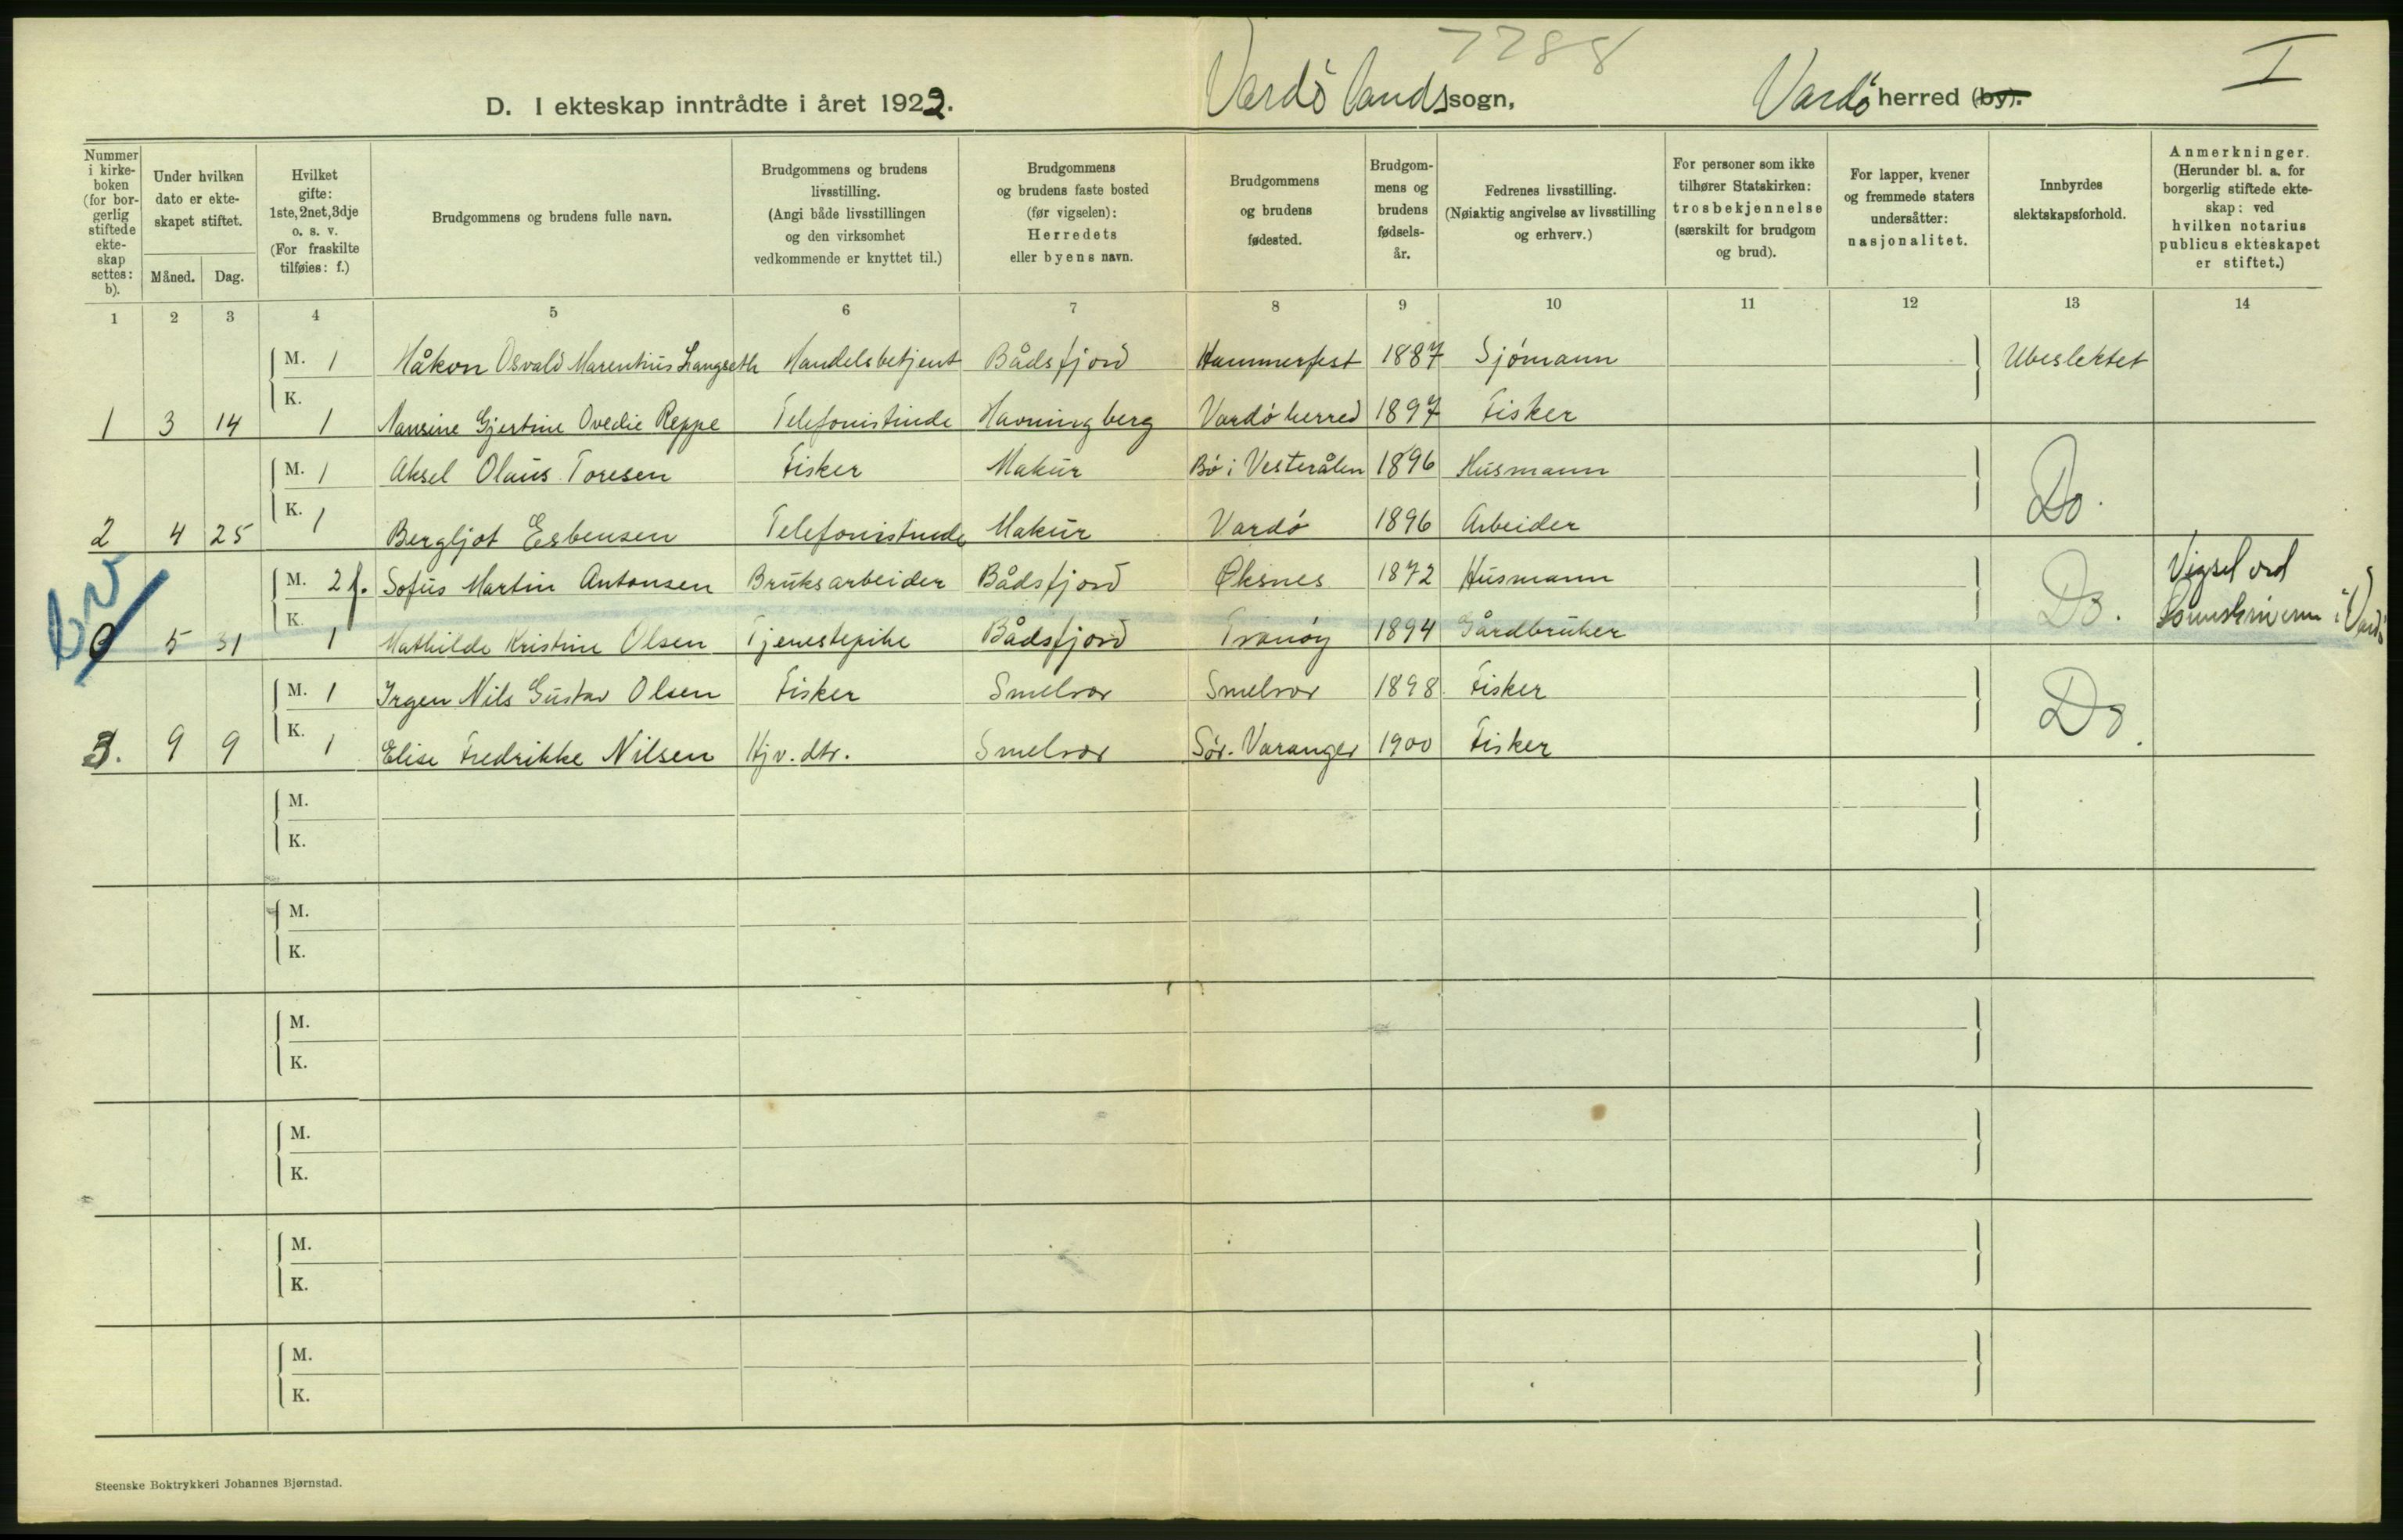 7788
I
D. I ekteskap inntrådte i året 1922. Vardö lands sogn, Vardö herred (by).
Nummer i kirkeboken (for borgerlig stiftede ekteskap settes: b).
Under hvilken dato er ekteskapet stiftet.
Måned. Dag.
Hvilket gifte: 1ste, 2net, 3dje o. s. v. (For fraskilte tilføies: f.)
Brudgommens og brudens fulle navn.
Brudgommens og brudens livsstilling. (Angi både livsstillingen og den virksomhet vedkommende er knyttet til.)
Brudgommens og brudens faste bosted (før vigselen): Herredets eller byens navn.
Brudgommens og brudens fødested.
Brudgommens og brudens fødselsår.
Fedrenes livsstilling. (Nøiaktig angivelse av livsstilling og erhverv.)
For personer som ikke tilhører Statskirken: trosbekjennelse (særskilt for brudgom og brud).
For lapper, kvener og fremmede staters undersåtter: nasjonalitet.
Innbyrdes slektskapsforhold.
Anmerkninger. (Herunder bl. a. for borgerlig stiftede ekteskap: ved hvilken notarius publicus ekteskapet er stiftet.)
1 2 3 4 5 6 7 8 9 10 11 12 13 14
M. 1 Håkon Osvald Marentius Langseth Handelsbetjent Bådsfjord Hammerfest 1887 Sjömann Ubeslektet
1 3 14 K. 1 Nansine Gjertine Ovedie Reppe Telefonistinde Havningberg Vardö herred 1897 Fisker
M. 1 Aksel Olaus Toresen Fisker Makur Bö i Vesterålen 1896 Husmann Do.
2 4 25 K. 1 Bergljot Esbensen Telefonistinde Makur Vardö 1896 Arbeider
M. 2 f. Sofus Martin Antonsen Bruksarbeider Bådsfjord Øksnes 1872 Husmann Do. Vigsel ved
5 31 K. 1 Mathilde Kristine Olsen Tjenestepike Bådsfjord Tranöy 1894 Gårdbruker Sorenskriveren i Vardö
M. 1 Irgen Nils Gustav Olsen Fisker Smelror Smelror 1898 Fisker Do.
3. 9 9 K. 1 Elise Fredrikke Nilsen Hjv. dtr. Smelror Sör-Varanger 1900 Fisker
M.
K.
M.
K.
M.
K.
M.
K.
M.
K.
M.
K.
Steenske Boktrykkeri Johannes Bjørnstad.